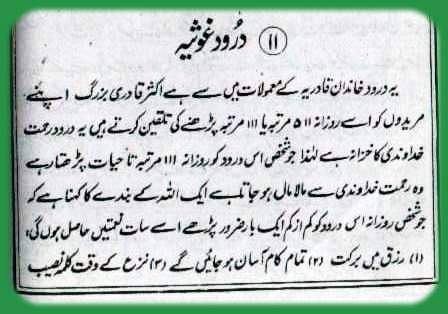 ۱۱ درود غوثیہ
یہ درود خاندان قادریہ کے معمولات میں سے ہے اکثر قادری بزرگ اپنے
مریدوں کو اسے روزانہ ۵۱۱ مرتبہ یا ۱۱۱ مرتبہ پڑھنے کی تلقین کرتے ہیں یہ درود رحمت
خداوندی کا خزانہ ہے لہٰذا جو شخص اس درود کو روزانہ ۱۱۱ مرتبہ تا حیات پڑھتا ہے
وہ رحمت خداوندی سے مالا مال ہو جاتا ہے ایک اللہ کے بندے کا کہنا ہے کہ
جو شخص روزانہ اس درود کو کم از کم ایک بار ضرور پڑھے اسے سات نعمتیں حاصل ہوں گی،
(۱) رزق میں برکت (۲) تمام کام آسان ہو جائیں گے (۳) نزع کے وقت کلمہ نصیب